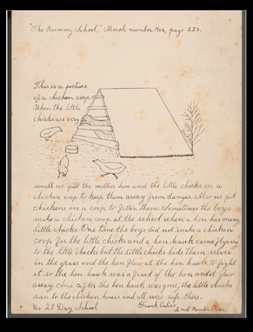 "The Primary School," March number 1904, page 224.
This is a picture
of a chicken coop.
When the little
chicks are very
small we put the mother hen and the little chicks in a
chicken coop to keep them away from danger. Also we put
chickens in a coop to fatten them. Sometimes the boys
make a chicken coop at the school when a hen has many
little chicks. One time the boys did not make a chicken
coop for the little chicks and a hen hawk came flying
to the little chicks but the little chicks hide them selves
in the grass and the hen flew at the hen hawk to fight
it so the hen hawk was afraid of the hen and flew
away. And after the hen hawk was gone, the little chicks
ran to the chicken house and all were safe there.
No. 27 Day School.
Frank
2nd Reader Class.